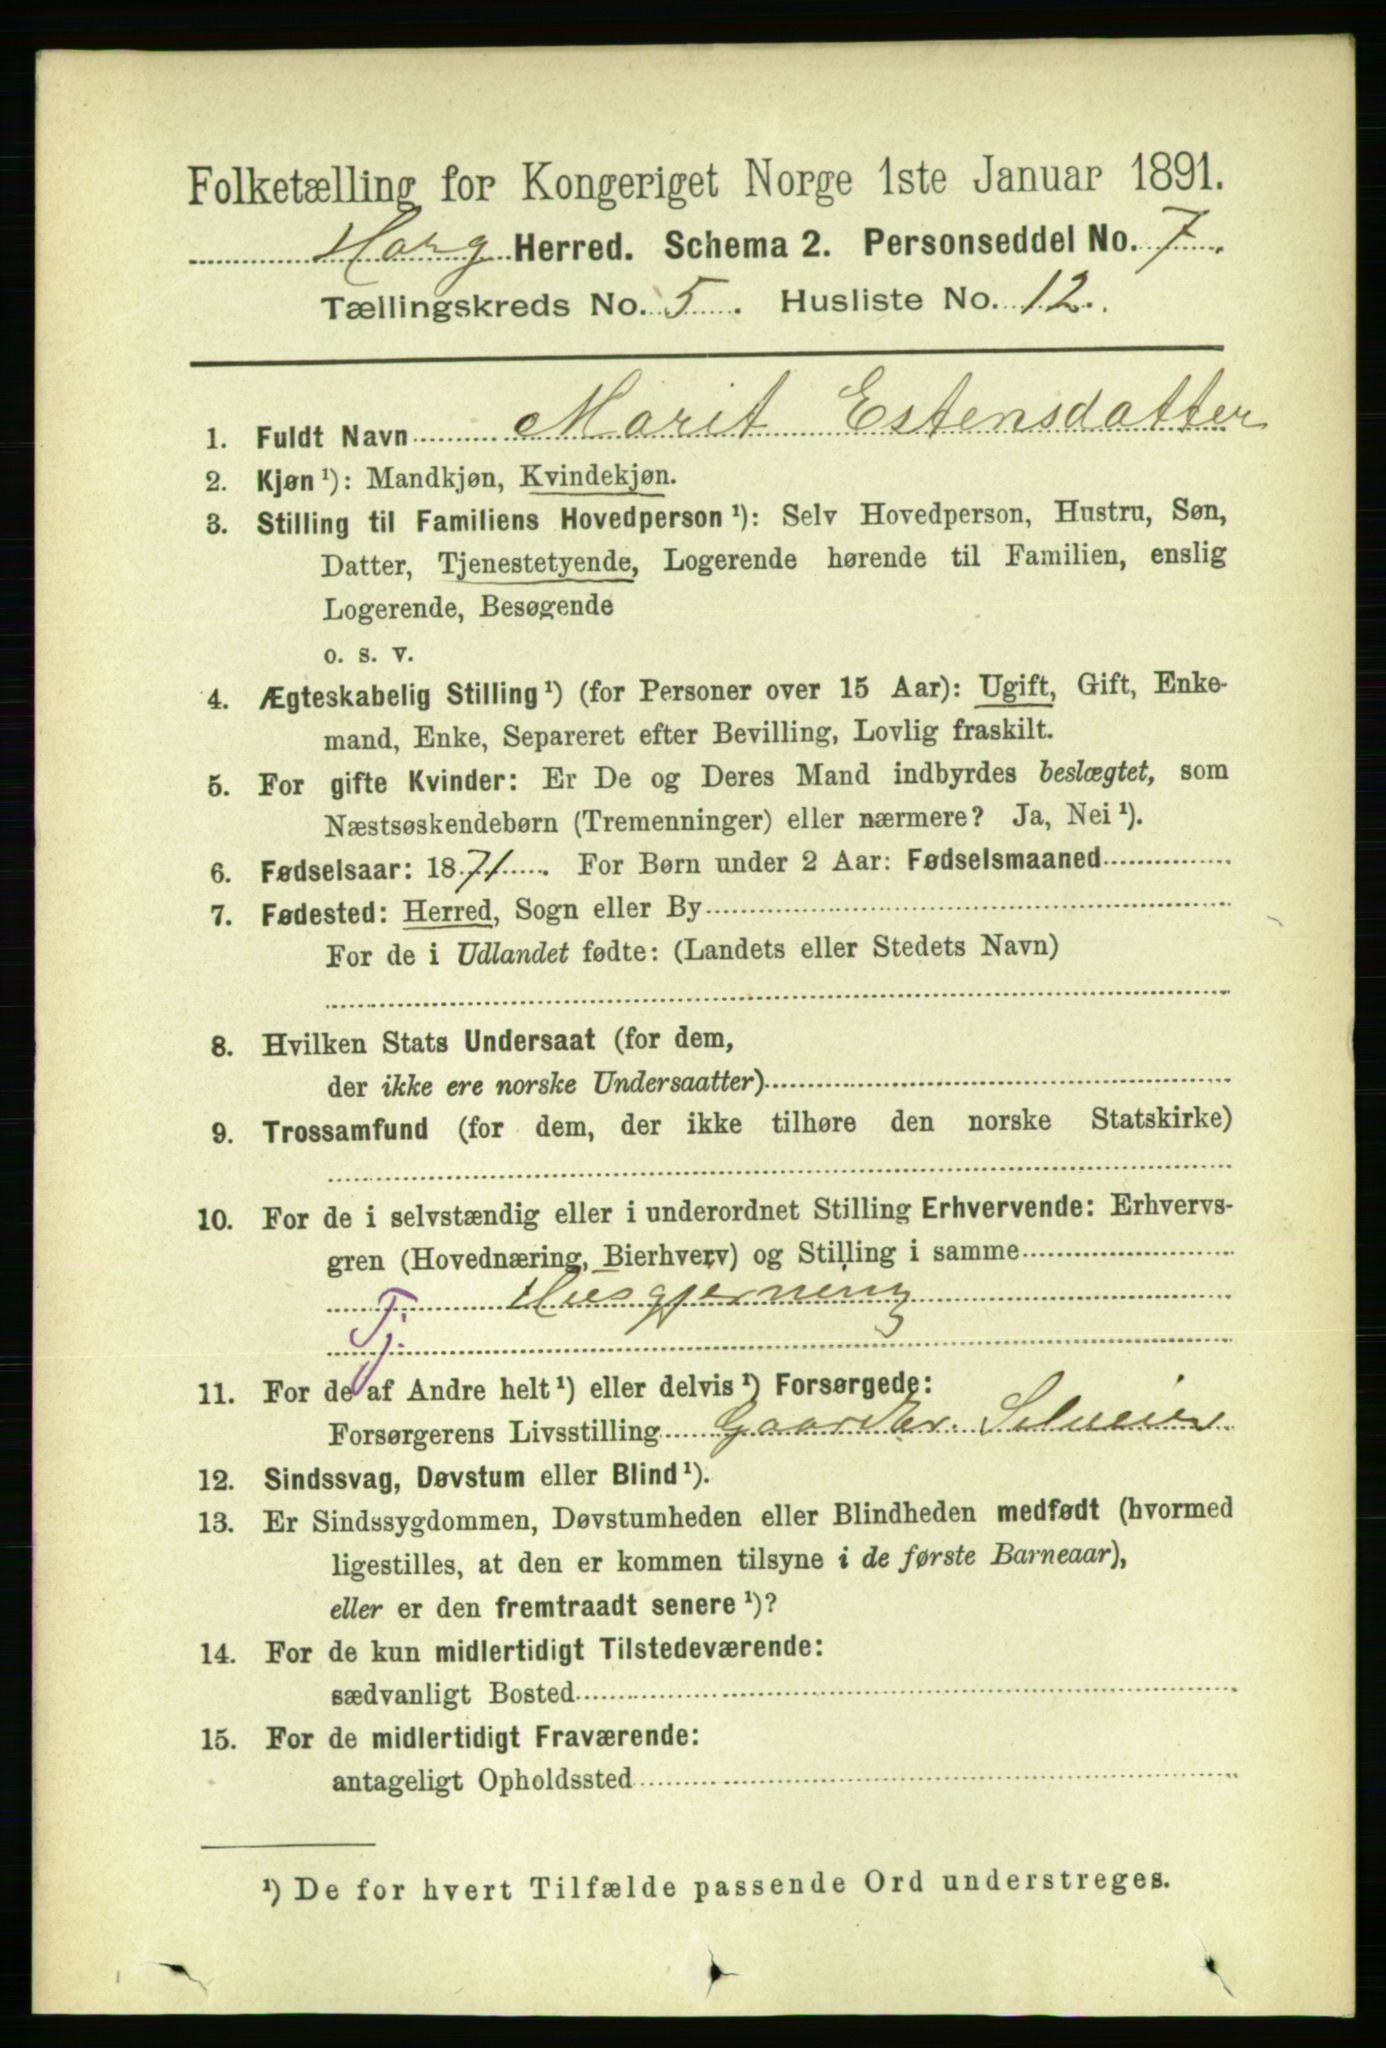 Folketælling for Kongeriget Norge 1ste Januar 1891.
Horg Herred. Schema 2. Personseddel No. 7.
Tællingskreds No. 5. Husliste No. 12.
1. Fuldt Navn Marit Estensdatter
2. Kjøn ¹): Mandkjøn, Kvindekjøn.
3. Stilling til Familiens Hovedperson ¹): Selv Hovedperson, Hustru, Søn,
Datter, Tjenestetyende, Logerende hørende til Familien, enslig
Logerende, Besøgende
o. s. v.
4. Ægteskabelig Stilling ¹) (for Personer over 15 Aar): Ugift, Gift, Enke-
mand, Enke, Separeret efter Bevilling, Lovlig fraskilt.
5. For gifte Kvinder: Er De og Deres Mand indbyrdes beslægtet, som
Næstsøskendebørn (Tremenninger) eller nærmere? Ja, Nei ¹).
6. Fødselsaar: 1871. For Børn under 2 Aar: Fødselsmaaned
7. Fødested: Herred, Sogn eller By
For de i Udlandet fødte: (Landets eller Stedets Navn)
8. Hvilken Stats Undersaat (for dem,
der ikke ere norske Undersaatter)
9. Trossamfund (for dem, der ikke tilhøre den norske Statskirke)
10. For de i selvstændig eller i underordnet Stilling Erhvervende: Erhvervs-
gren (Hovednæring, Bierhverv) og Stilling i samme
Husgjerning
Tj.
11. For de af Andre helt ¹) eller delvis ¹) Forsørgede:
Forsørgerens Livsstilling Gaardbr.
12. Sindssvag, Døvstum eller Blind ¹).
13. Er Sindssygdommen, Døvstumheden eller Blindheden medfødt (hvormed
ligestilles, at den er kommen tilsyne i de første Barneaar),
eller er den fremtraadt senere ¹)?
14. For de kun midlertidigt Tilstedeværende:
sædvanligt Bosted
15. For de midlertidigt Fraværende:
antageligt Opholdssted
¹) De for hvert Tilfælde passende Ord understreges.